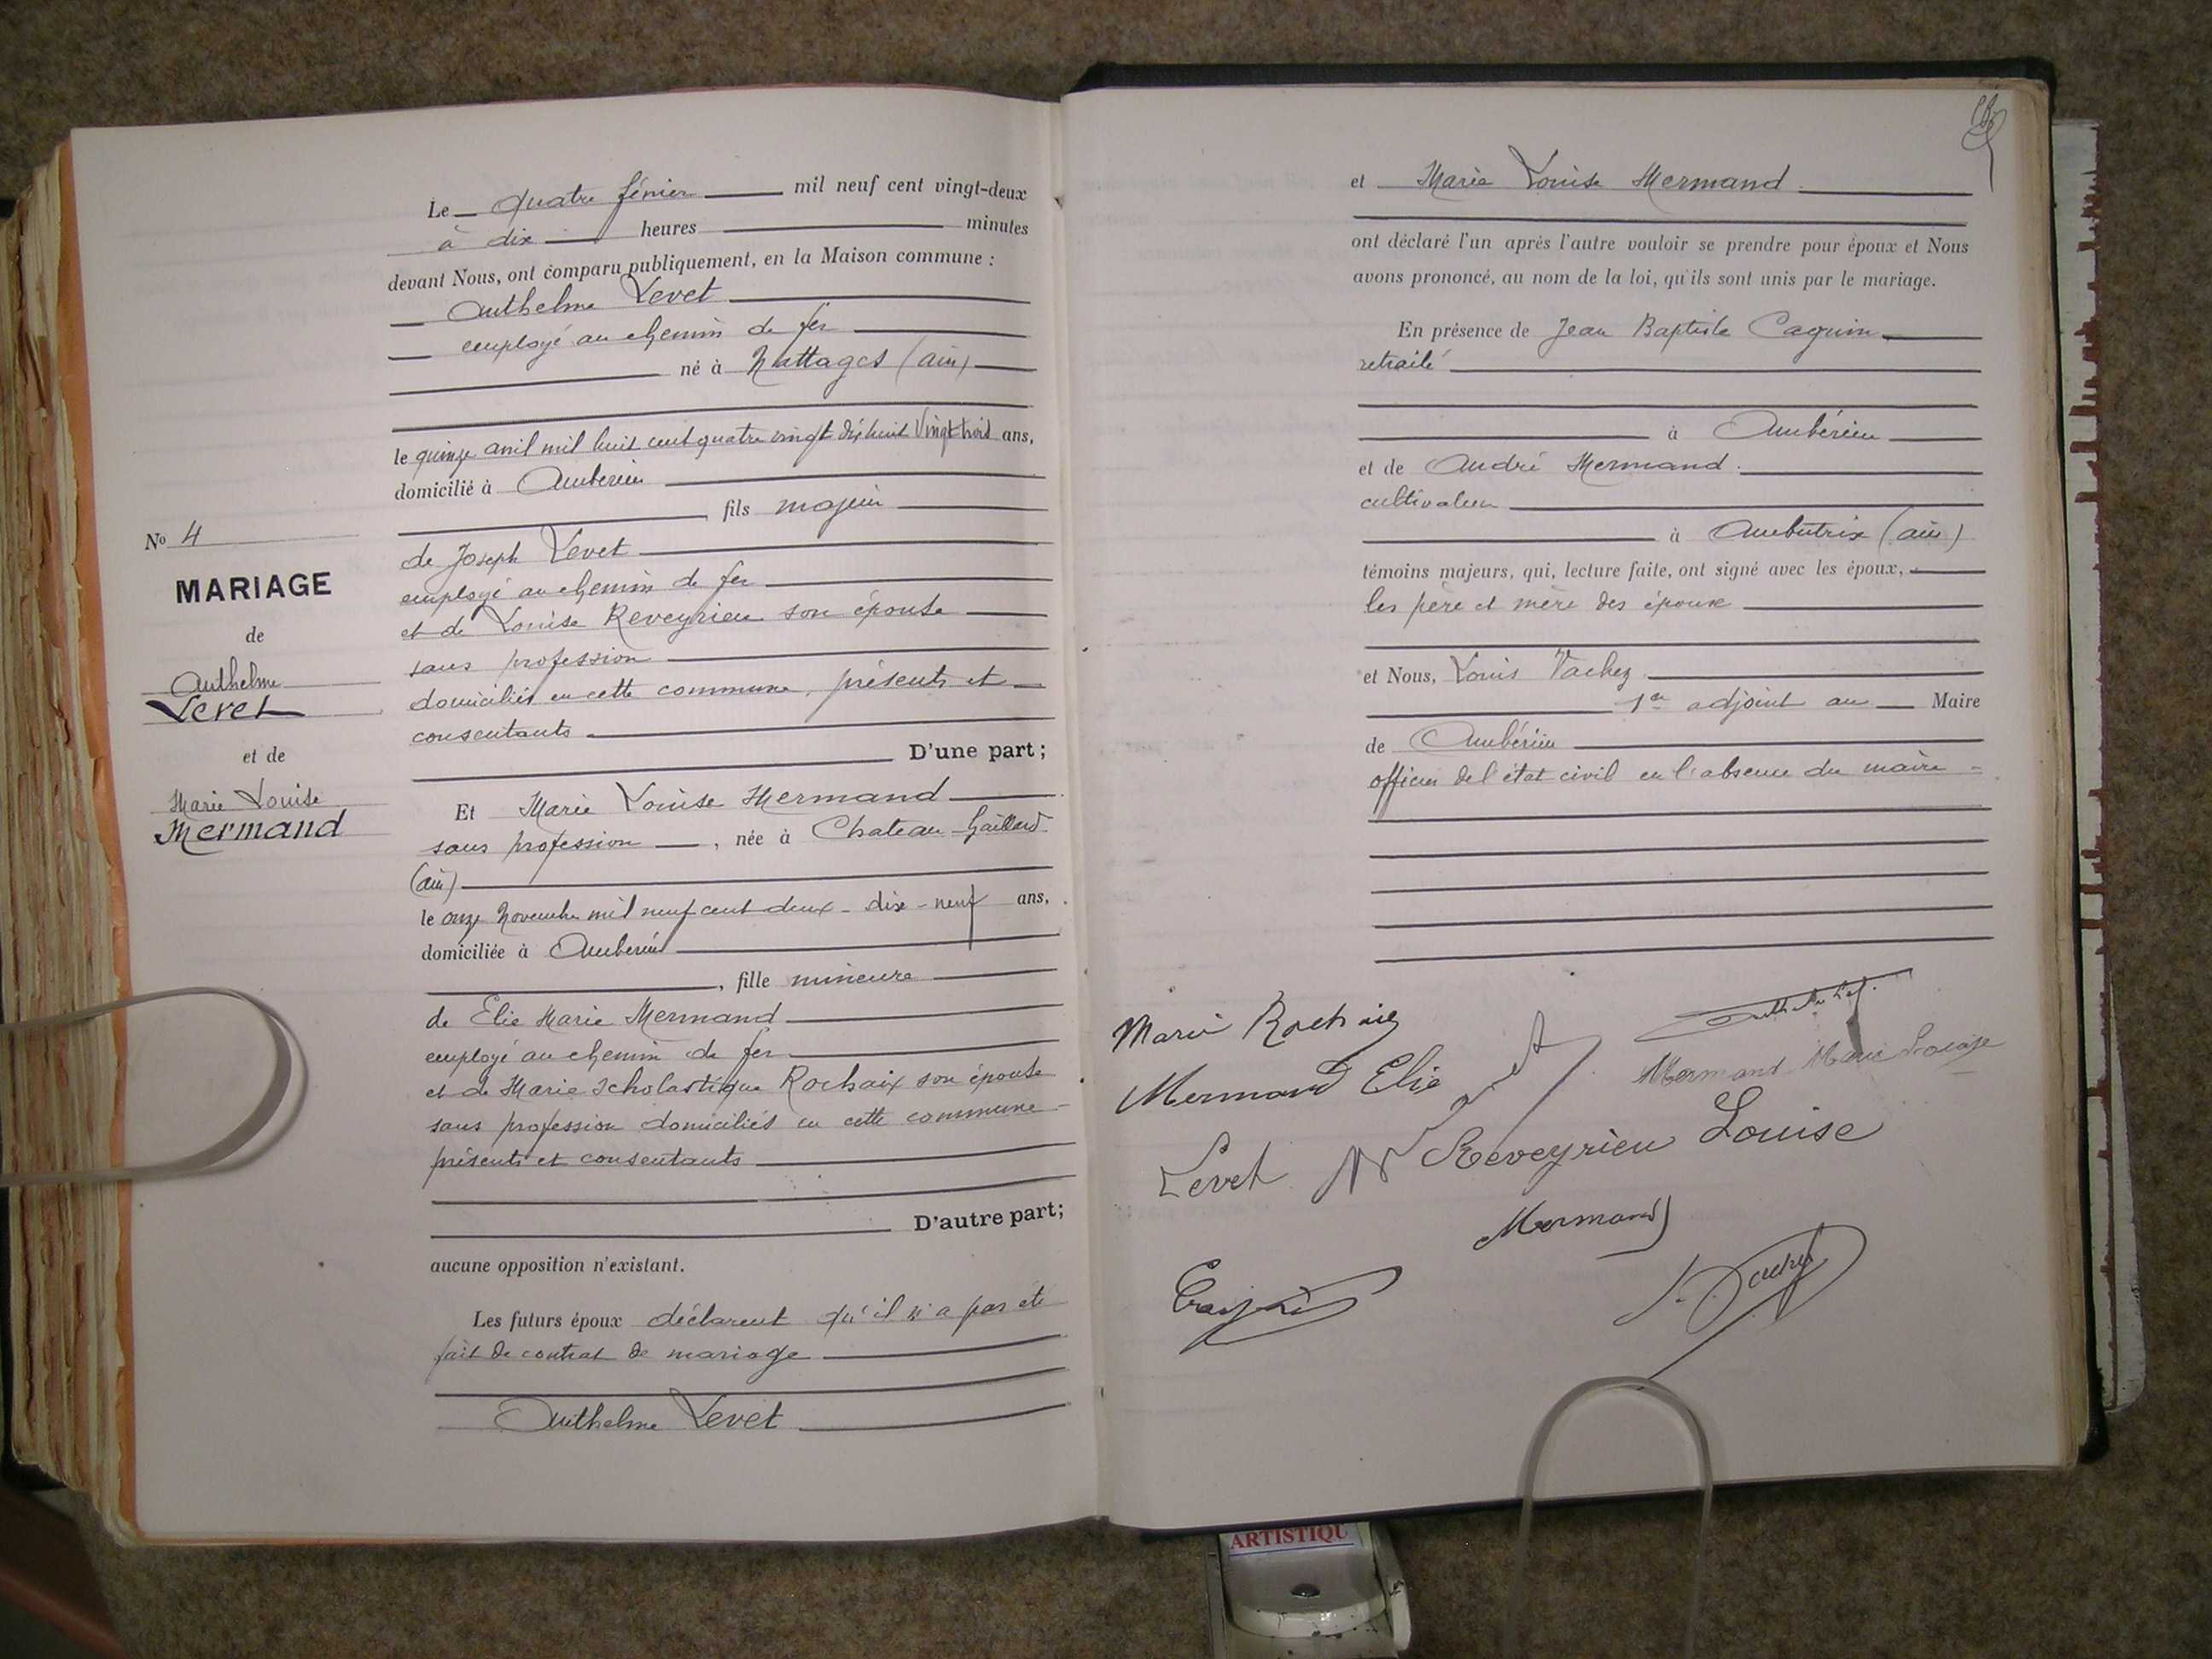 N° 4
MARIAGE
de
Anthelme
Levet
et de
Marie Louise
Mermand
Le quatre février mil neuf cent vingt-deux
à dix heures minutes
devant Nous, ont comparu publiquement, en la Maison commune :
Anthelme Levet
employé au chemin de fer
né à Nattages (ain)
le quinze avril mil huit cent quatre vingt dix huit Vingt trois ans,
domicilié à Ambérieu
fils majeur
de Joseph Levet
employé au chemin de fer
et de Louise Reveyrieu son épouse
sans profession
domiciliés en cette commune, présents et
consentants
D'une part;
Et Marie Louise Mermand
sans profession , née à Chateau Gaillard
(ain)
le onze Novembre mil neuf cent deux - dix-neuf ans,
domiciliée à Ambérieu
, fille mineure
de Elie Marie Mermand
employé au chemin de fer
et de Marie Scholastique Rochaix son épouse
sans profession domiciliés en cette commune
présents et consentants
D'autre part;
aucune opposition n'existant.
Les futurs époux déclarent qu'il n'a pas été
fait de contrat de mariage
Anthelme Levet
et Marie Louise Mermand
ont déclaré l'un après l'autre vouloir se prendre pour époux et Nous
avons prononcé, au nom de la loi, qu'ils sont unis par le mariage.
En présence de Jean Baptiste Caquin
retraité
à Ambérieu
et de André Mermand
cultivateur
à Ambutrix (ain)
témoins majeurs, qui, lecture faite, ont signé avec les époux,
les père et mère des époux
et Nous, Louis Vachez
1er adjoint au Maire
de Ambérieu
officier de l'état civil en l'absence du maire
Marie Rochaix
Mermand Elie
Mermand Marie Louise
Levet
Reveyrieu Louise
Mermand
ARTISTIQU